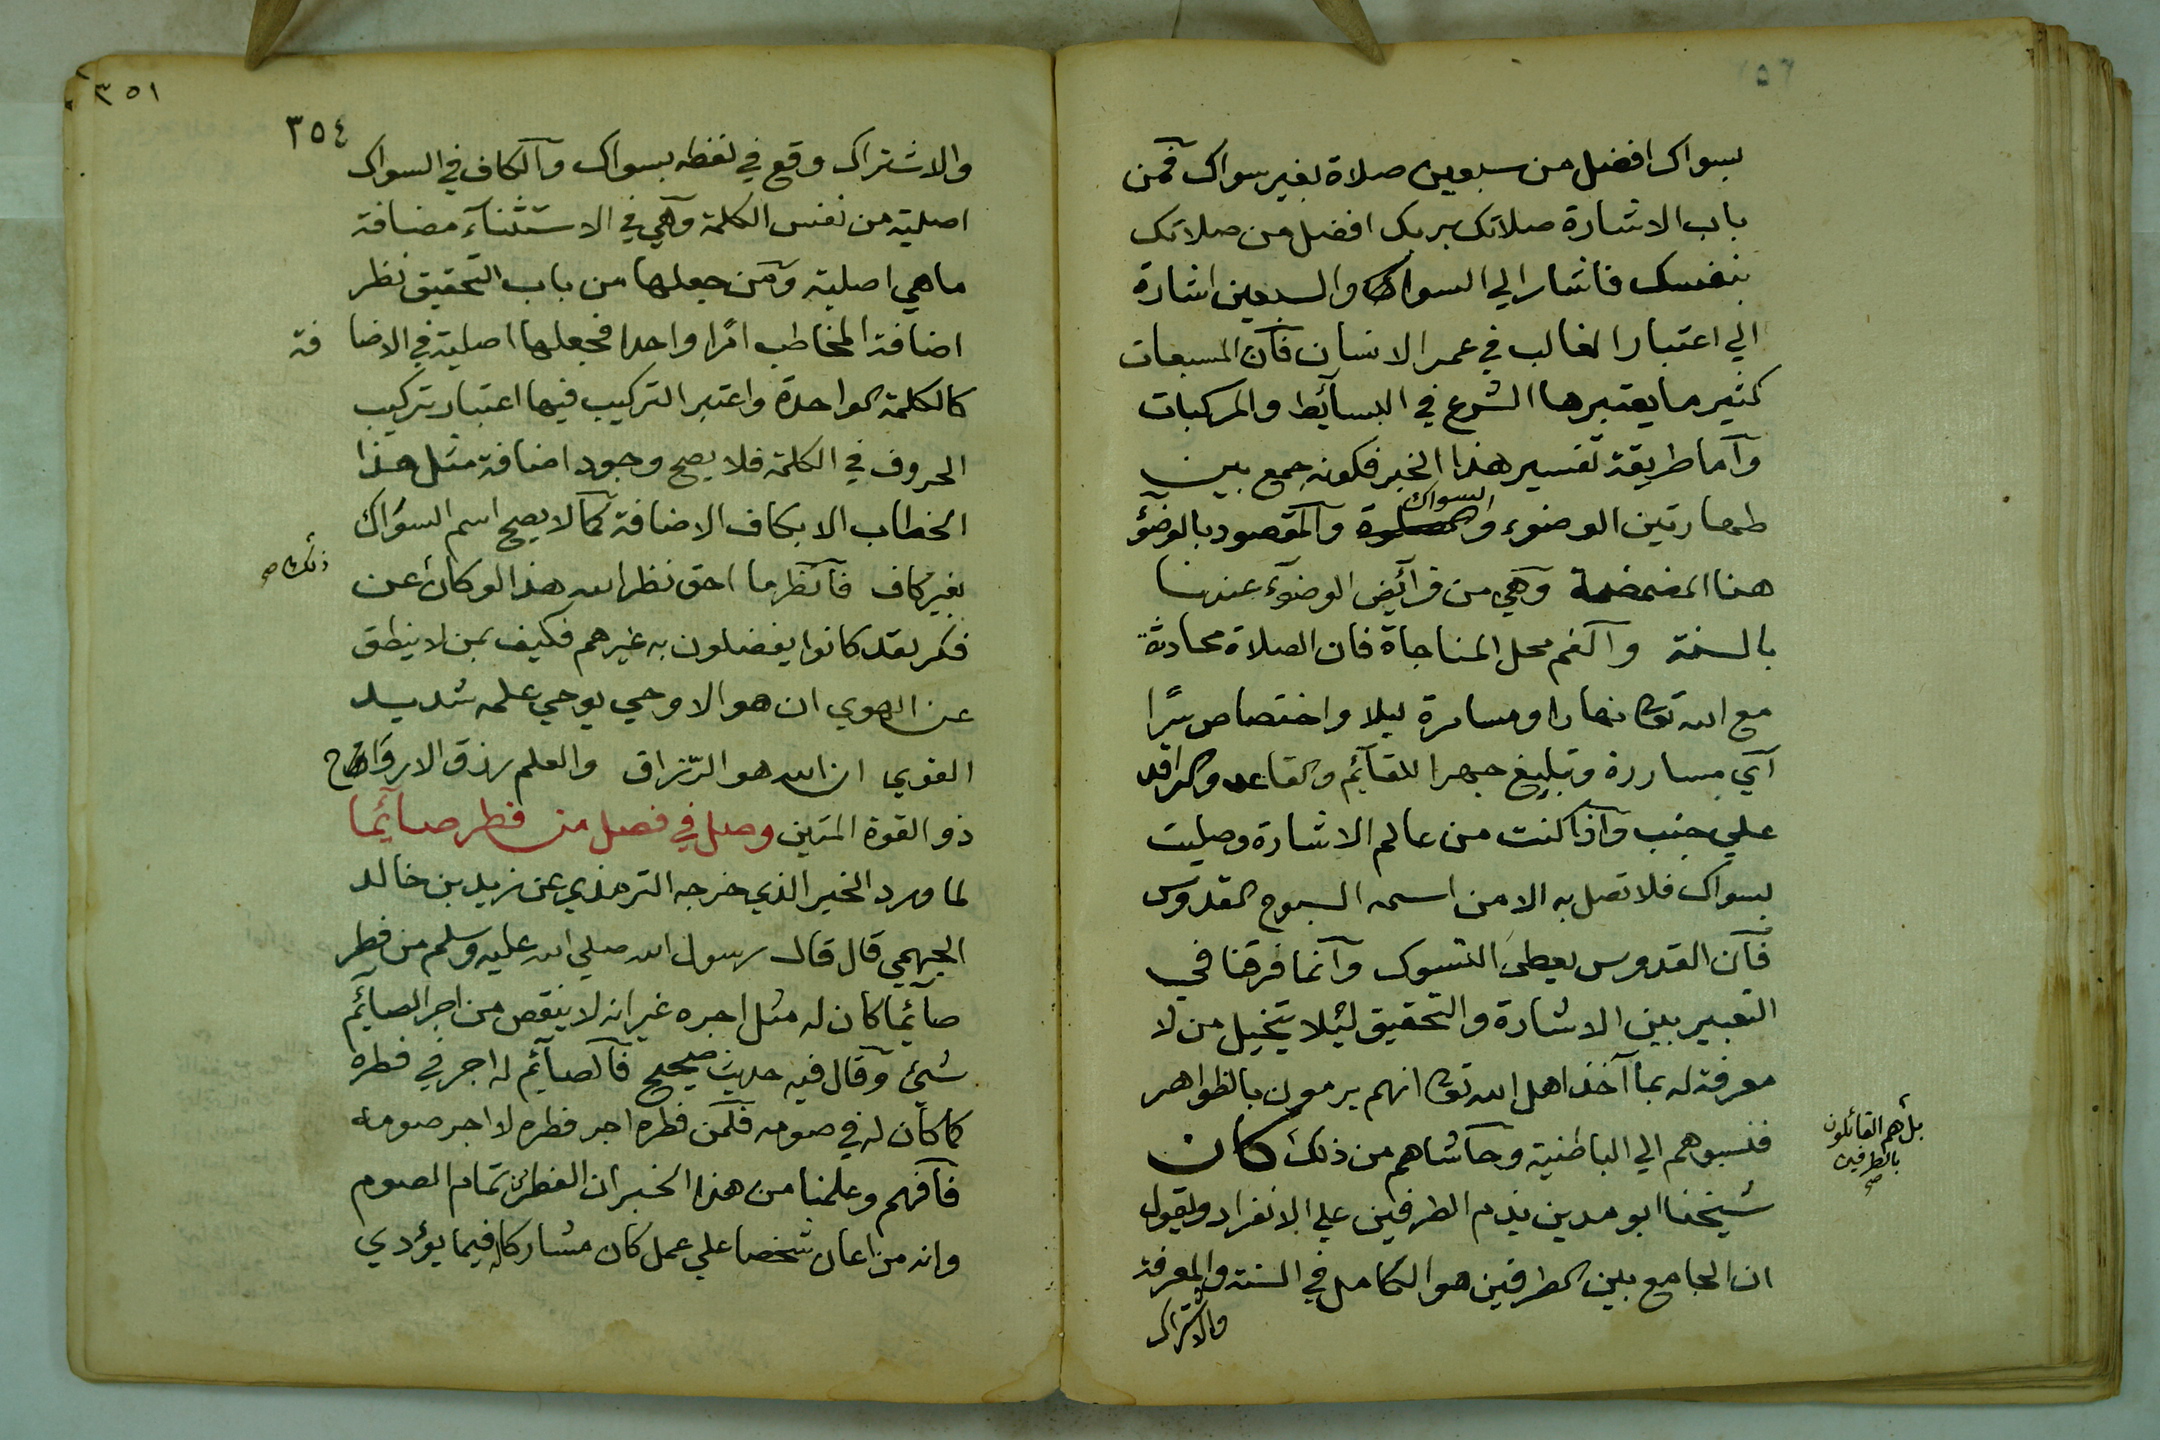 بسواك افضل من سبعين صلاة بغير سواك فمن
باب الاشارة صلاتك بربك افضل من صلاتك
بنفسك فاشار الي السواك والسبعين اشارة
الي اعتبار الغالب في عمر الانسان فان المسبعات
كثير ما يعتبرها الشرع في البسائط والمركبات
واما طريقة تفسير هذا الخبر فكونه جمع بين
السواك
طهارتين الوضوء و والمقصود بالوضؤ
هنا المضمضة وهي من فرائض الوضوء عندنا
بالسنة والفم محل المناجاة فان الصلاة محادثة
مع الله تعا نهارا ومسامرة ليلا واختصاص سرًا
اي مساررة وتبليغ جهرا للقائم والقاعد والراقد
علي جنب واذا كنت من عالم الاشارة وصليت
بسواك فلا تصل به الا من اسمه السبوح القدوس
فان القدوس يعطي التسوك وانما فرقنا في
التعبير بين الاشارة والتحقيق لئلا يتخيل من لا
معرفة له بمآ آخذ اهل الله تعا انهم يرمون بالظواهر
فنسبوهم الي الباطنية وحاشاهم من ذلك كان
بل هم القائلون
بالطرفين
صح
شيخنا ابو مدين يذم الطرفين علي الانفراد ويقول
ان الجامع بين الطرفين هو الكامل في السنة والمعرفة
والاشتراك
٣٥١
٣٥٤
والاشتراك وقع في لفظه بسواك والكاف في السواك
اصلية من نفس الكلمة وهي في الاستثناء مضافة
ما هي اصلية ومن جعلها من باب التحقيق نظر
اضافة المخاطب امرًا واحدا فجعلها اصلية في الاضا فة
كالكلمة الواحدة واعتبر التركيب فيها اعتبار تركيب
الحروف في الكلمة فلا يصح وجود اضافة مثل هذا
الخطاب الا بكاف الاضافة كما لا يصح اسم السواك
بغير كاف فانظر ما احق نظر الله هذا لو كان عن
ذلك صح
فكر لقد كانوا يفضلون به غيرهم فكيف بمن لا ينطق
عن الهوي ان هو الا وحي يوحي علمه شديد
القوي ان الله هو الرّزاق والعلم رزق الارواح
ذو القوة المتين وصل في فصل من فطر صائما
لما ورد الخبر الذي خرجه الترمذي عن زيد بن خالد
الجهمي قال قال رسول الله صلي الله عليه وسلم من فطر
صائما كان له مثل اجره غير انه لا ينقص من اجر الصايئم
شيئ وقال فيه حديث صحيح فالصايئم له اجر في فطره
كما كان له في صومه فلمن فطره اجر فطره لا اجر صومه
فافهم وعلمنا من هذا الخبر ان الفطر من تمام الصوم
وانه من اعان شخصا علي عمل كان مشاركا له فيما يؤدي